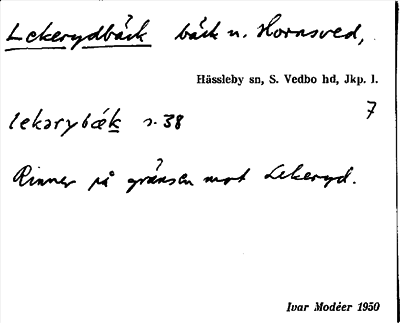 Lekerydbäck bäck n. Hornsved,
Hässleby sn, S. Vedbo hd, Jkp. l.
7
lekərybæk s. 38
Rinner på gränsen mot Lekeryd.
Ivar Modéer 1950